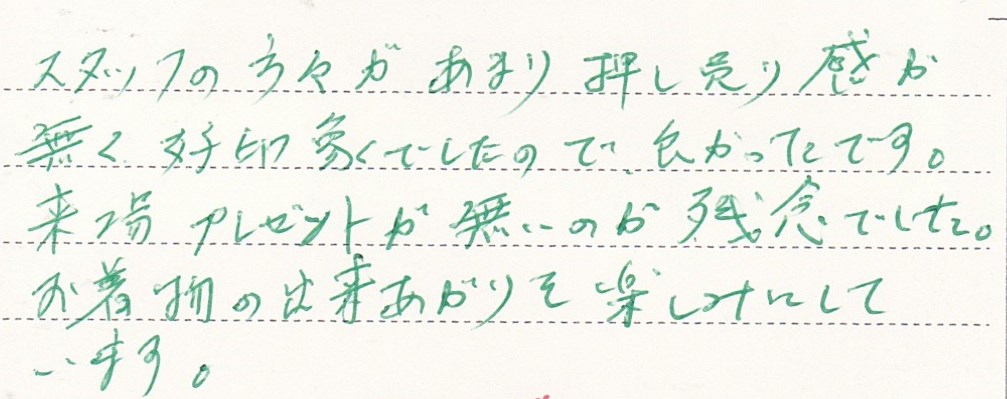 スタッフの方々があまり押し売り感が
無く好印象くでしたので良かったです。
来場プレゼントが無いのが残念でした。
お着物の出来あがりを楽しみにして
います。